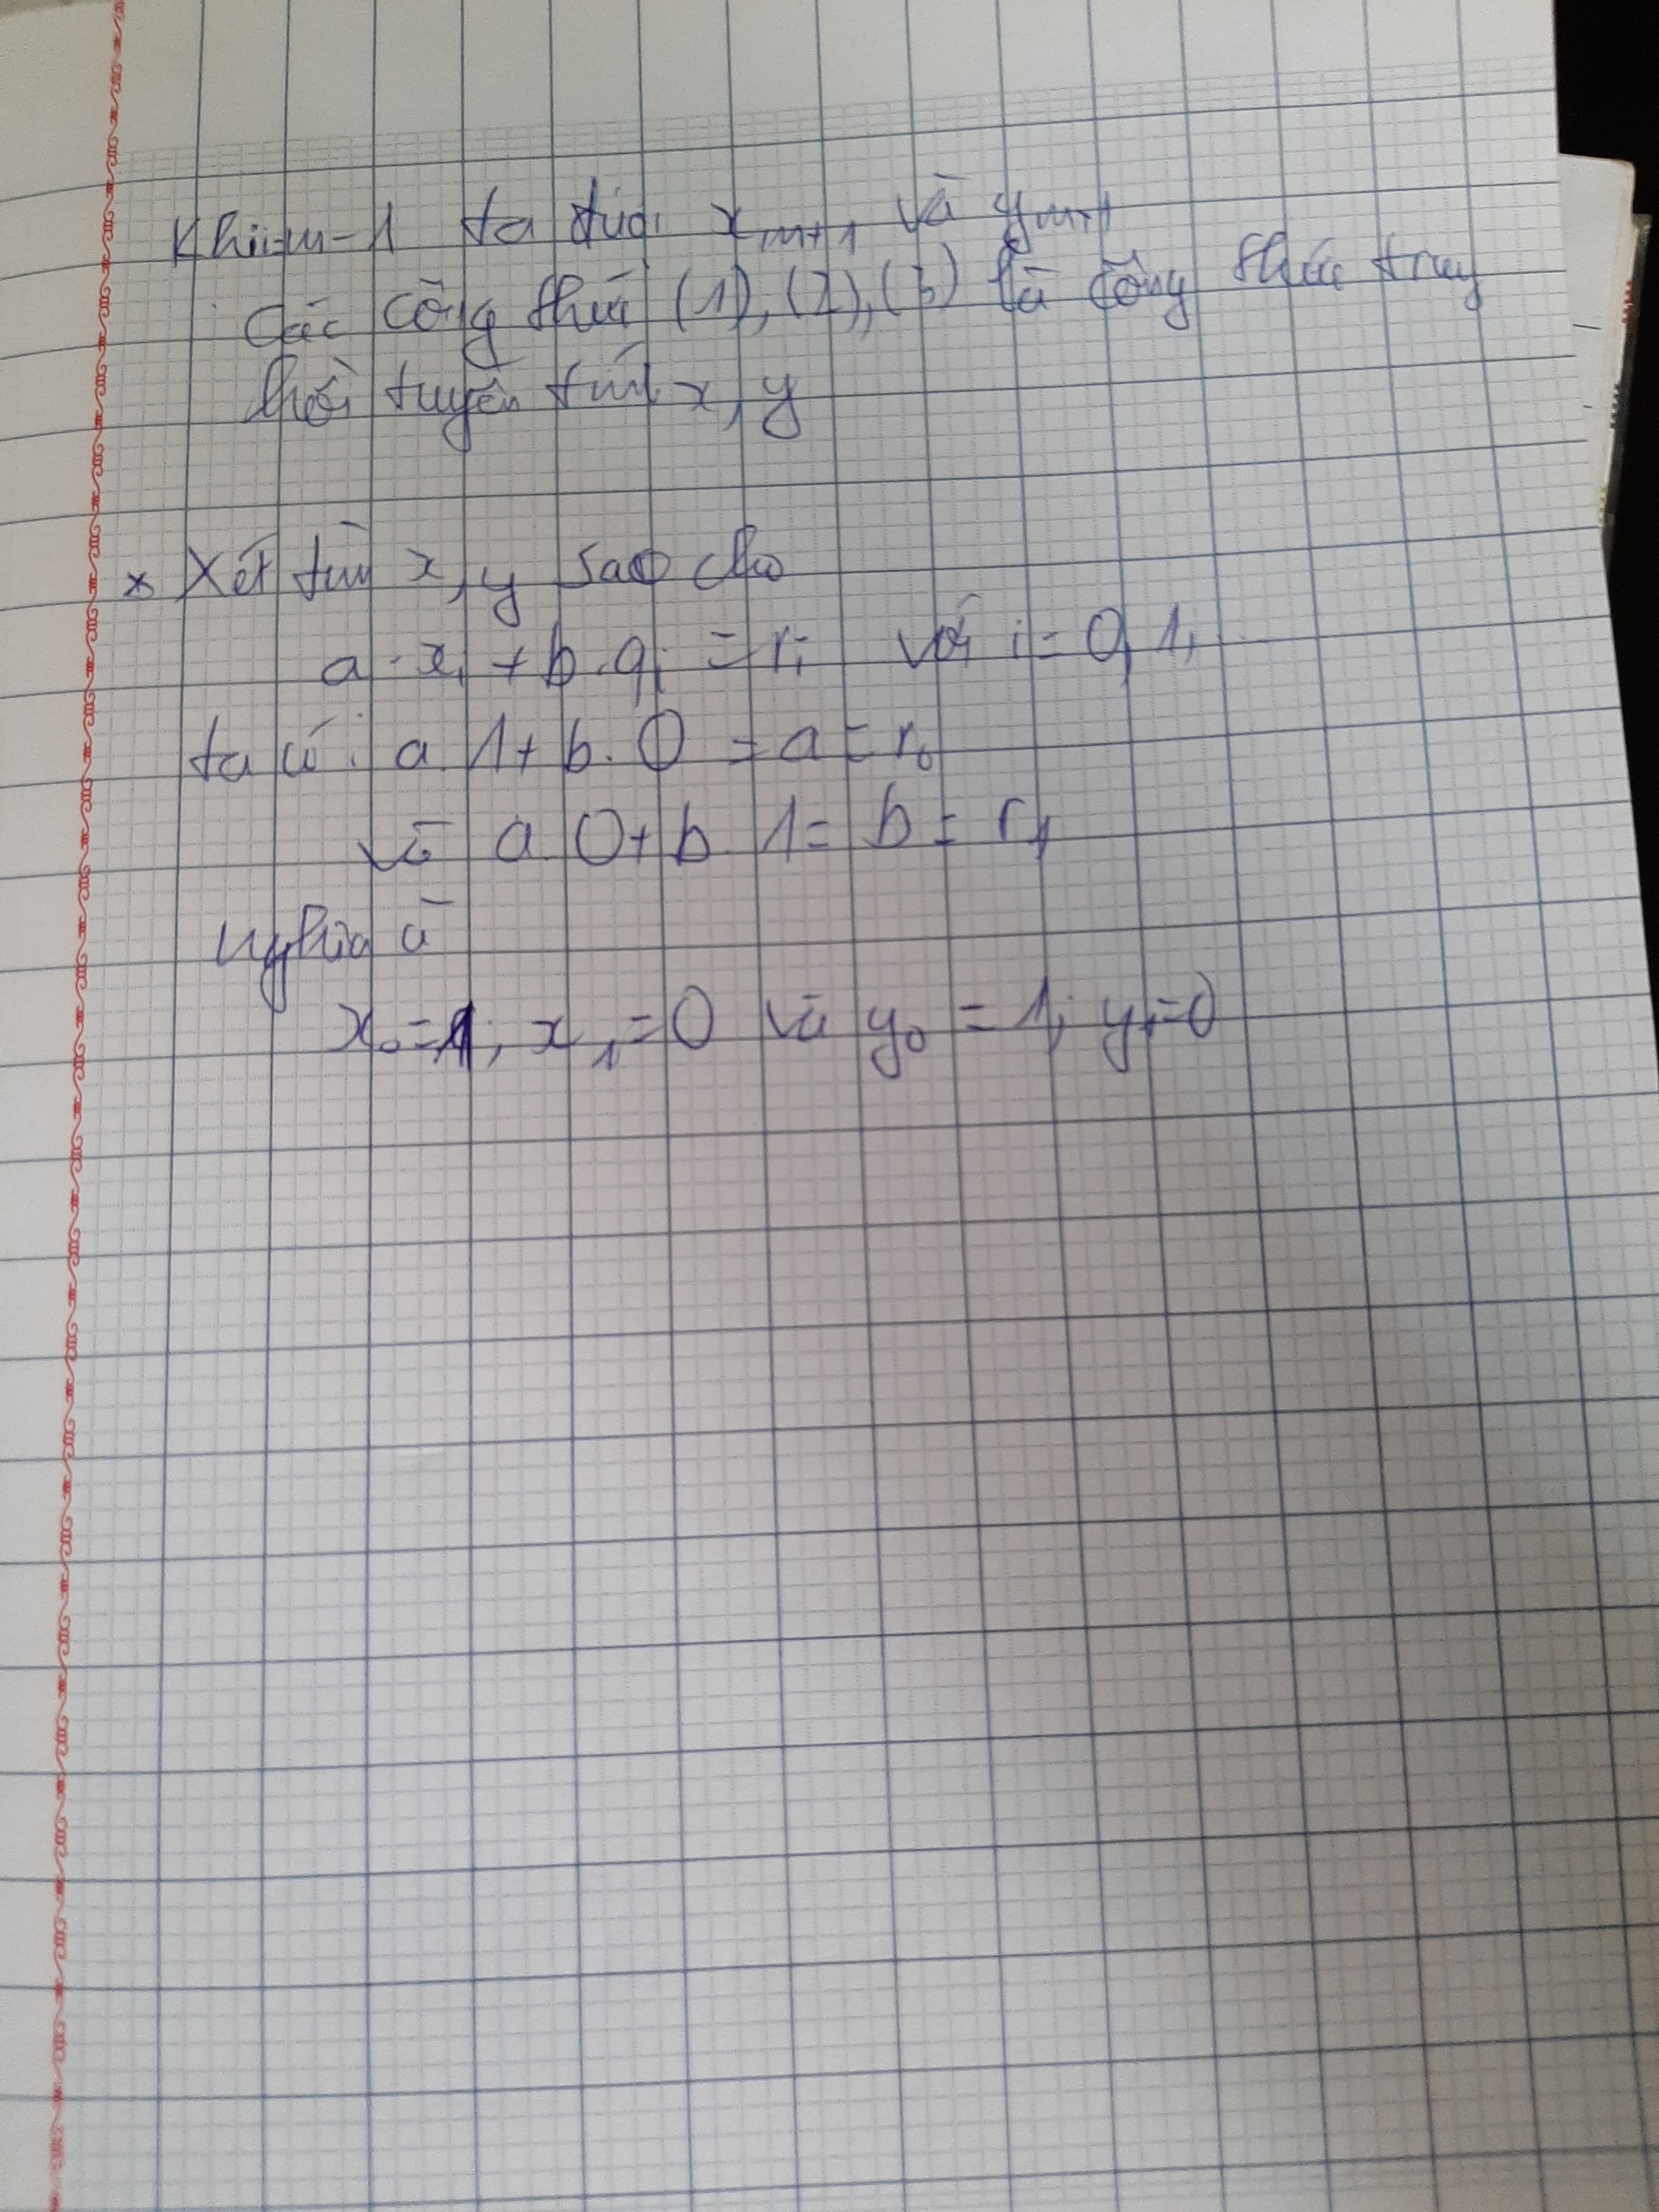 Khi i=m-1 ta được x_{m+1} và y_{m+1}
Các công thức (1), (2), (3) là công thức truy
hồi tuyến tính x, y
* Xét tìm x, y sao cho
a·x_i + b.q_i = r_i với i = 0, 1, ..
ta có: a.1 + b.0 = a = r_0
và a.0 + b.1 = b = r_1
nghĩa là
x_0 = 1; x_1 = 0 và y_0 = 1; y_1 = 0